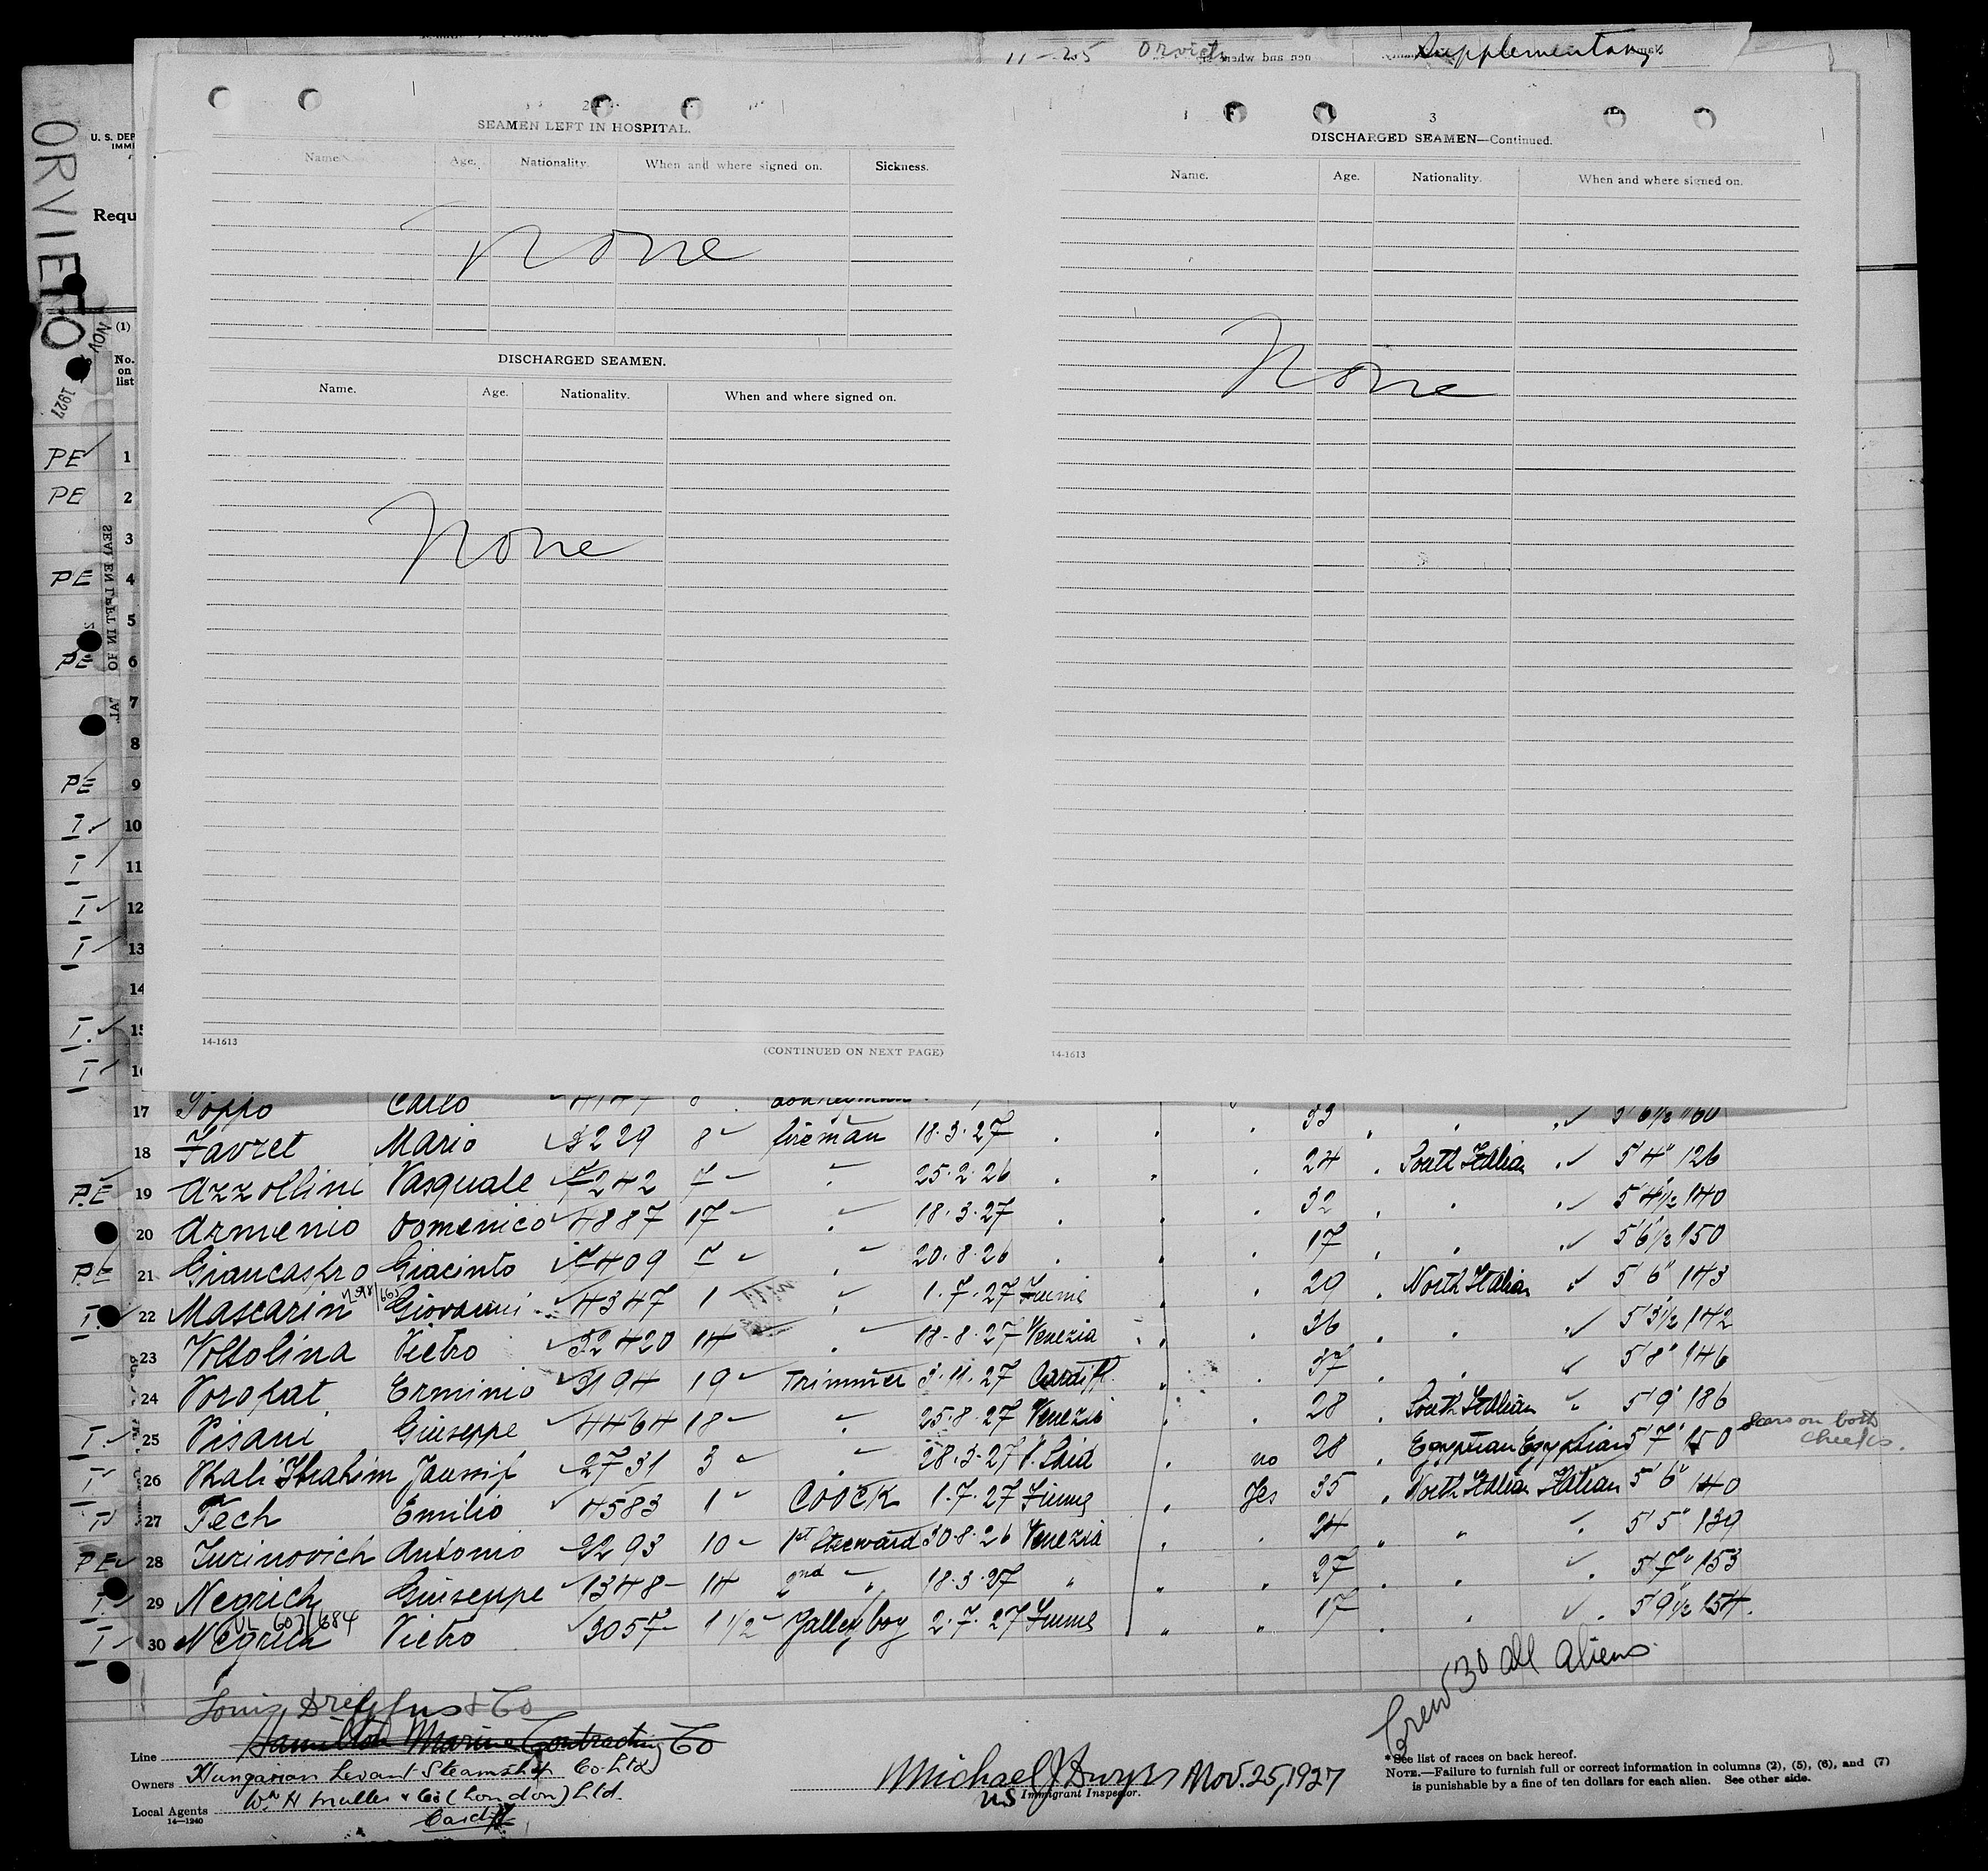 11-25 Orvieto Supplementary
ORVIETO
NOV 1927
U. S. DEP
IMMI
Requ
(1)
No. on list
2
SEAMEN LEFT IN HOSPITAL.
Name. Age. Nationality. When and where signed on. Sickness.
None
DISCHARGED SEAMEN.
Name. Age. Nationality. When and where signed on.
None
14-1613
(CONTINUED ON NEXT PAGE)
3
DISCHARGED SEAMEN—Continued.
Name. Age. Nationality. When and where signed on.
None
14-1613
PE 1
PE 2
3
PE 4
5
PE 6
7
8
PE 9
I 10
I 11
I 12
I 13
14
I 15
I 16
17 Poppo Carlo 33 5' 6½ 160
18 Favret Mario 3229 8 fireman 18.3.27 24 South Italian 5' 4" 126
PE 19 Azzollini Pasquale 7242 7 " 25.2.26 32 5' 4½ 140
20 Armenio Domenico 4887 17 " 18.3.27 17 5' 6½ 150
PE 21 Giancaspro Giacinto 7409 7 " 20.8.26 29 North Italian 5' 6" 143
I 22 Mascarin Giovanni 4347 1 " 1.7.27 Fiume 36 5' 3½ 142
23 Voltolina Pietro 32420 14 " 18-8.27 Venezia 37 5' 8" 146
24 Poropat Erminio 3194 19 Trimmer 3.11.27 Cardiff 28 South Italian 5' 9" 186
I 25 Pisani Giuseppe 4464 18 " 25.8.27 Venezia no 28 Egyptian Egyptian 5' 7" 150 Scars on both cheeks.
I 26 Khali Ibrahim Jaussif 2731 3 " 28.3.27 P. Said Yes 35 North Italian Italian 5' 6" 140
I 27 Tech Emilio 4583 1 Coock 1.7.27 Fiume 24 5' 5" 139
PE 28 Jurinovich Antonio 3293 10 1st Steward 30.8.26 Venezia 27 5' 7" 153
I 29 Negrich Giuseppe 1348 14 2nd " 18.3.27 " 17 5' 9½ 154.
I 30 Negrich Pietro 3057 1½ Galley boy 2.7.27 Fiume
Crew 30 all aliens
Louis Dreyfus & Co
Line Hamilton Marine Contracting Co
Owners Hungarian Levant Steamship Co. Ltd
Local Agents Wm H Muller & Co (London) Ltd.
Cardiff
14—1240
Michael J Dwyer Nov. 25, 1927
US Immigrant Inspector.
* See list of races on back hereof.
NOTE.—Failure to furnish full or correct information in columns (2), (5), (6), and (7)
is punishable by a fine of ten dollars for each alien. See other side.